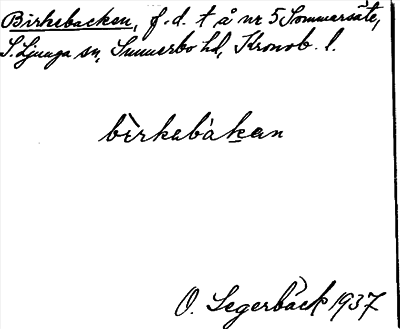 Birkebacken, f.d. t å nr 5 Sommarsäte,
S. Ljunga sn, Sunnerbo hd, Kronob. l.
bìrkabàkan
O. Segerbäck 1937